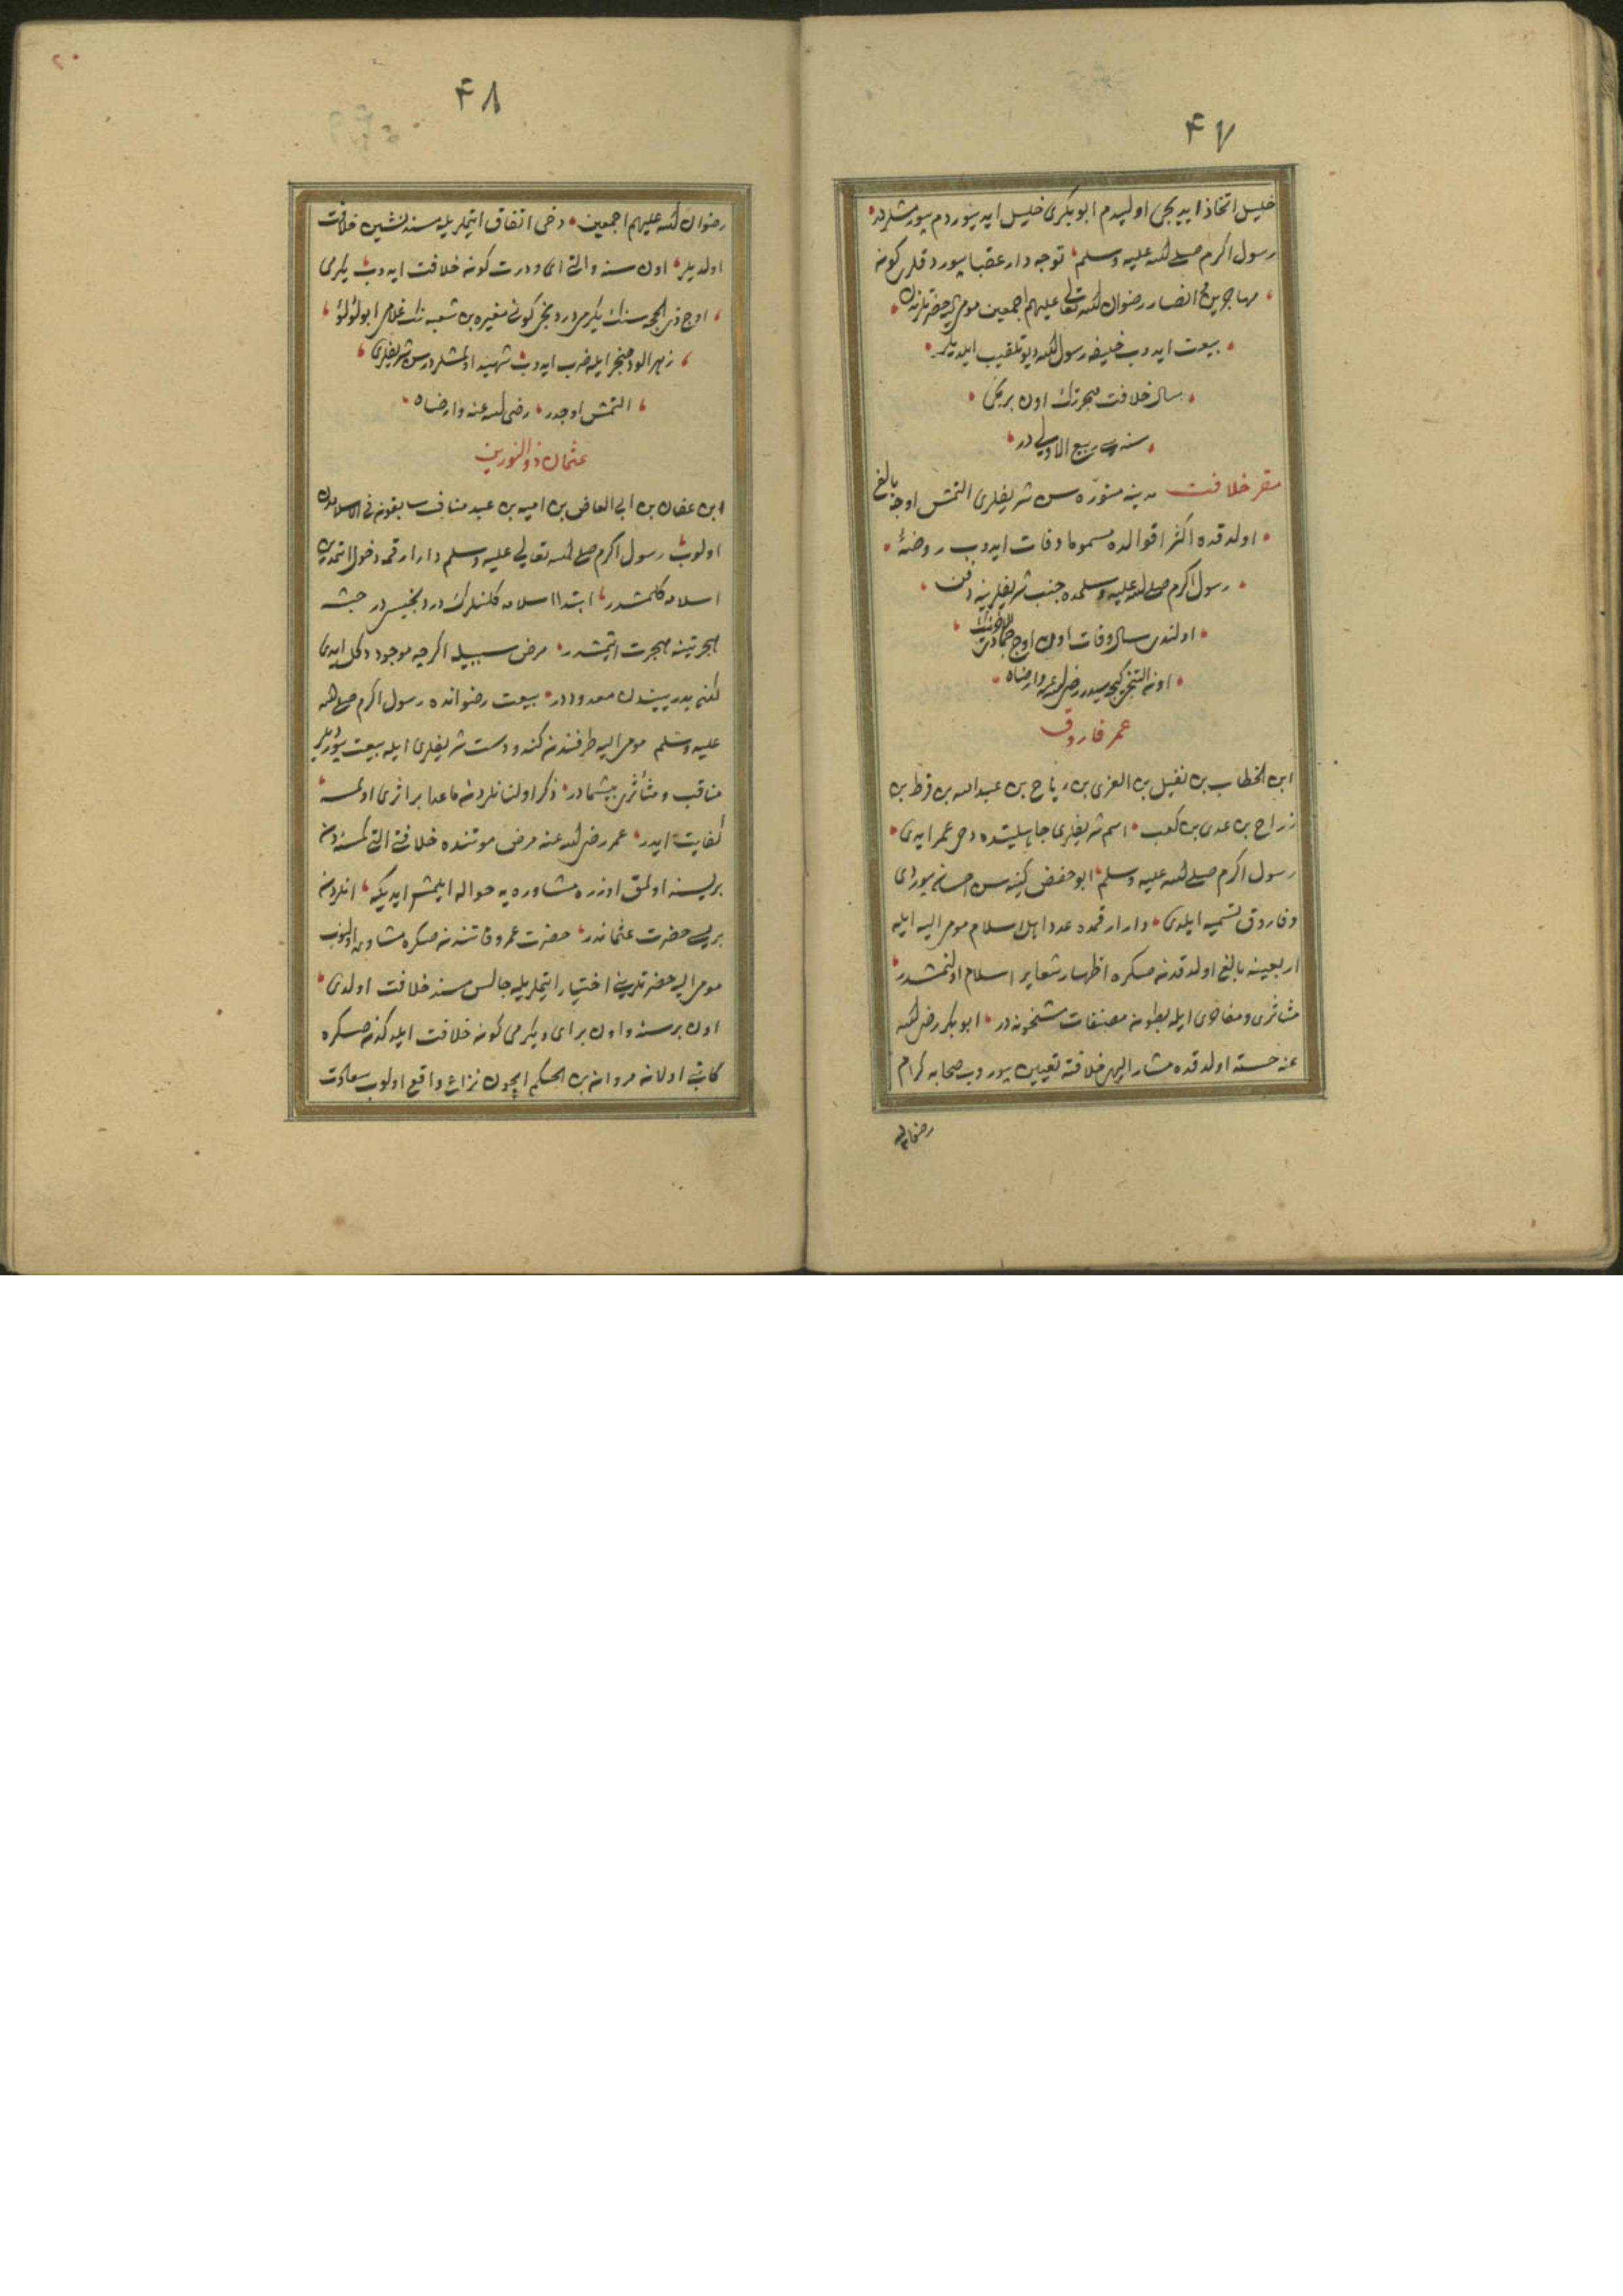 ٤٧
خليل اتخاذ ايديجى اوليدم ابو بكرى خليل ايدينوردم بيورمشلردر
رسول اكرم صلى الله عليه وسلم توجه دار عقبا بيوردقلرى كونه
مهاجرين و انصار رضوان الله تعالى عليهم اجمعين مومى اليه حضرتلرينه
بيعت ايدوب خليفه رسول الله ديو تلقيب ايلديلر
سال خلافت هجرتك اون برنجى
سنه سى ربيع الاولى در
مقر خلافت مدينه منوره سن شريفلرى التمش اوجه بالغ
اولدقده اكثر اقوالده مسموما وفات ايدوب روضۀ
رسول اكرم صلى الله عليه وسلمده جنب شريفلرينه دفن
اولندى سال وفات اون اوج جمادى الاخرنك
اون التنجى كيجه سيدر رضى الله عنه وارضاه
عمر فاروق
ابن الخطاب بن نفيل بن العزى بن رياح بن عبد الله بن قرط بن
زراح بن عدى بن كعب اسم شريفلرى جاهليتده دخى عمر ايدى
رسول اكرم صلى الله عليه وسلم ابو حفص كنيه سن احسان بيوردى
و فاروق تسميه ايلدى دار ارقمده عدد اهل اسلام مومى اليه ايله
اربعينه بالغ اولدقدنصكره اظهار شعاير اسلام اولنمشدر
مـٔاثرى و مفاخرى ايله بطون مصنفات مشحوندر ابو بكر رضى الله
عنه خسته اولدقده مشار اليهى خلافته تعيين بيوروب صحابه كرام
رضوان الله
٤٨
٢٠
رضوان الله عليهم اجمعين دخى اتفاق ايتمكريله مسندنشين خلافت
اولديلر اون سنه و التى اى و درت كون خلافت ايدوب يكرمى
اوج ذى الحجه سنك يكرمى دردنجى كونى مغيره بن شعبه نك غلامى ابو لؤلؤ
زهرالود خنجر ايله ضرب ايدوب شهيد اولمشلردر سن شريفلرى
التمش اوجدر رضى الله عنه وارضاه
عثمان ذو النورين
ابن عفان بن ابى العاص بن امية بن عبد مناف سابقون فى الاسلامدن
اولوب رسول اكرم صلى الله تعالى عليه وسلم دار ارقمه دخول اتمدين
اسلامه كلمشدر ابتدا اسلامه كلنلرك دردنجيسيدر حبشه
هجرتينه هجرت اتمشدر مرض سببيله اكرچه موجود دكل ايدى
لكن بدريينددن معدوددر بيعت رضوانده رسول اكرم صلى الله
عليه وسلم مومى اليه طرفندن كندو دست شريفلرى ايله بيعت بيورديلر
مناقب و مـٔاثرى بيشمادر ذكر اولنانلردن ماعدا بر اثرى اولمسه
كفايت ايدر عمر رضى الله عنه مرض موتنده خلافتى التى كمسنه دن
بريسنه اولمق اوزره مشاوره يه حواله ايلمش ايديكه انلردن
بريسى حضرت عثماندر حضرت عمر وفاتندنصكره مشاوره اولنوب
مومى اليه حضرتلرينى اختيار ايتمكريله جالس مسند خلافت اولدى
اون بر سنه و اون بر اى و يكرمى كون خلافت ايلدكدنصكره
كاتبى اولان مروان بن الحكم ايچون نزاع واقع اولوب سعادت